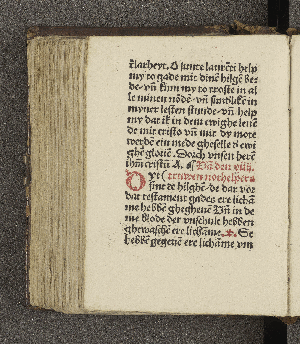 klarheyt. O sunte laurēti help
my to gade mit dinē hilgē be-
de· vn̄ kum my to troste in al
le minen nödē· vn̄ sundlikē in
myner lesten stunde· vn̄ help
my dat ik in dem ewighe leuē
de mit cristo vn̄ mit dy mote
werdē ein mede gheselle d̕ ewi
ghē glorie. Dorch vnsen herē
ihm cristū A. Vā den xiiij.
Dyt
sint de hilghē· de dar vor
dat testament gades ere lichā
me hebbē ghegheuē Vn̄ in de
me blode der vnschult hebben
ghewaschē ere lichāme. Se
hebbē gegeuē ere lichāme vm